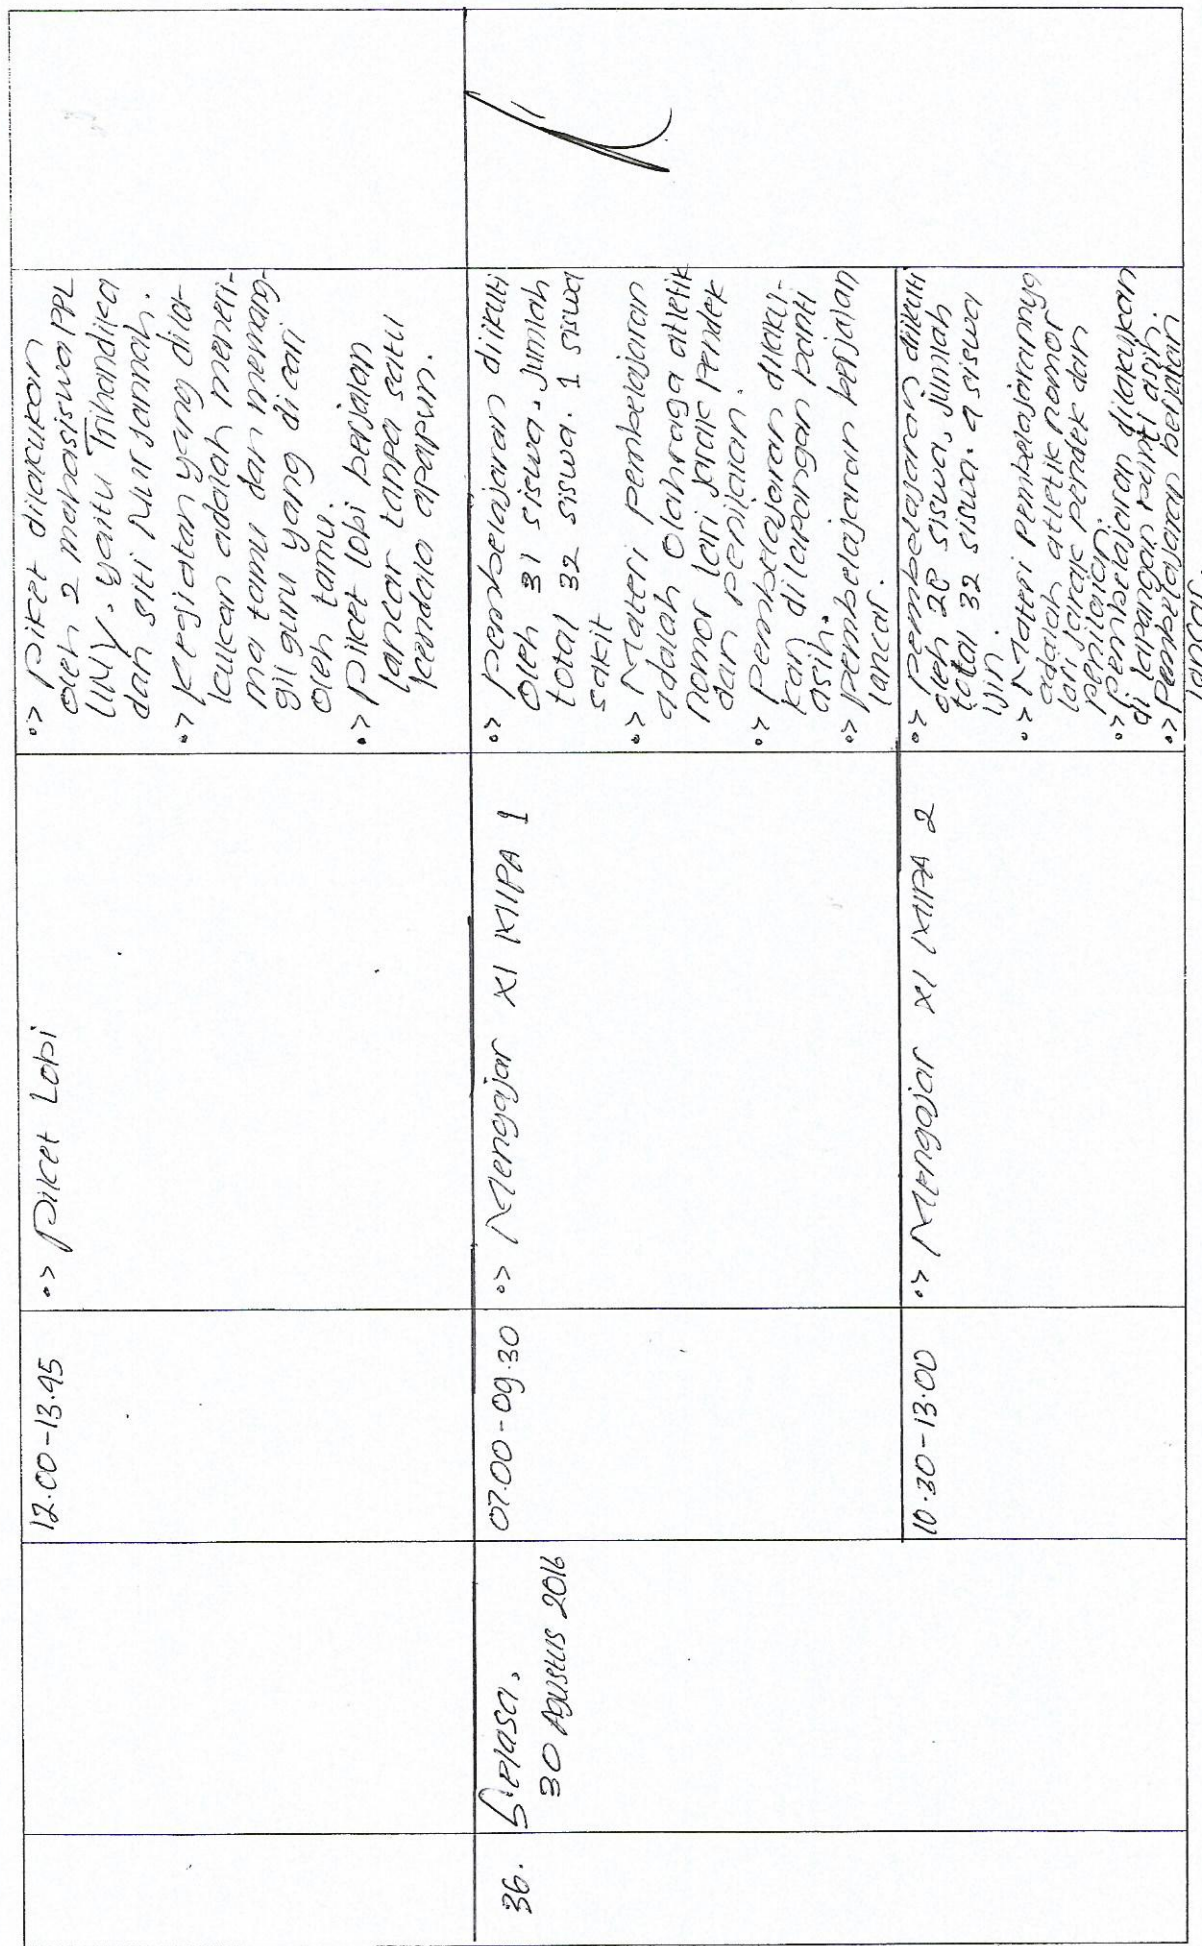 12.00-13.45
•> Piket Lobi
•> Piket dilakukan
oleh 2 mahasiswa PPL
UNY. yaitu Trihandika
dan Siti Nur Jannah.
•> Kegiatan yang dila-
kukan adalah meneri-
ma tamu dan memang-
gil guru yang dicari
oleh tamu.
•> Piket lobi berjalan
lancar tanpa satu
kendala apapun.
36.
Selasa,
30 Agustus 2016
07.00-09.30
•> Mengajar XI MIPA 1
•> Pembelajaran diikuti
oleh 31 siswa. Jumlah
total 32 siswa. 1 siswa
sakit
•> Materi pembelajaran
adalah Olahraga atletik
nomor lari jarak pendek
dan penilaian.
•> Pembelajaran dilaku-
kan dilapangan panti
asih.
•> pembelajaran berjalan
lancar.
10.30-13.00
•> Mengajar XI MIPA 2
•> Pembelajaran diikuti
oleh 28 siswa, jumlah
total 32 siswa. 4 siswa
ijin.
•> Materi Pembelajarannya
adalah atletik nomor
lari jarak pendek dan
penilaian.
•> Pembelajaran dilakukan
di lapangan panti asih.
•> Pembelajaran berjalan
lancar.